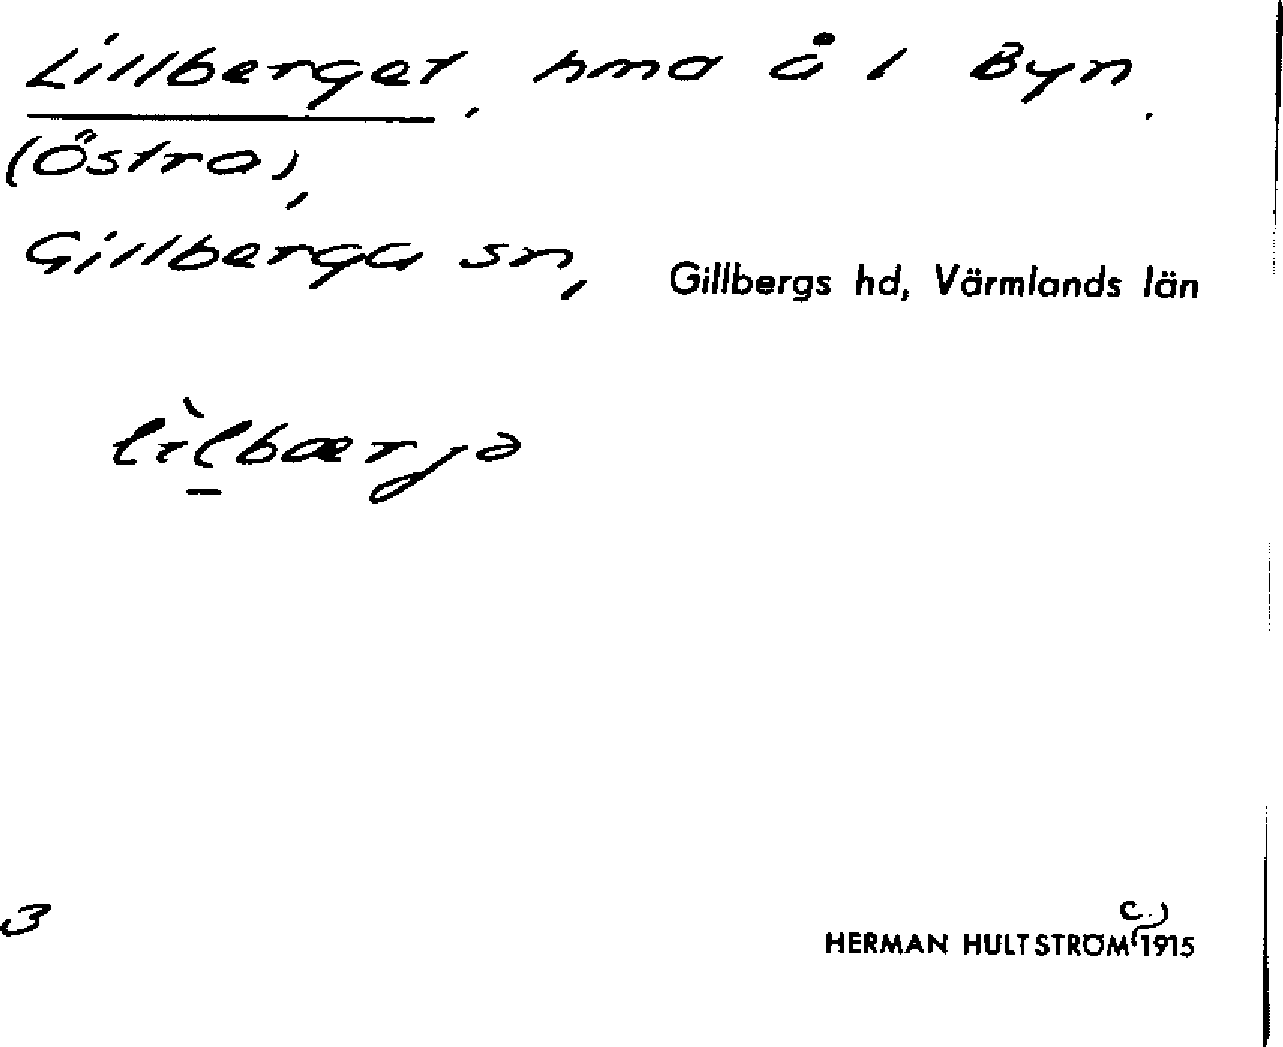 Lillberget, hmd å 1 Byn.
(Östra),
Gillberga sn, Gillbergs hd, Värmlands län
lìlbærjə
3
c.)
HERMAN HULTSTRÖM 1915